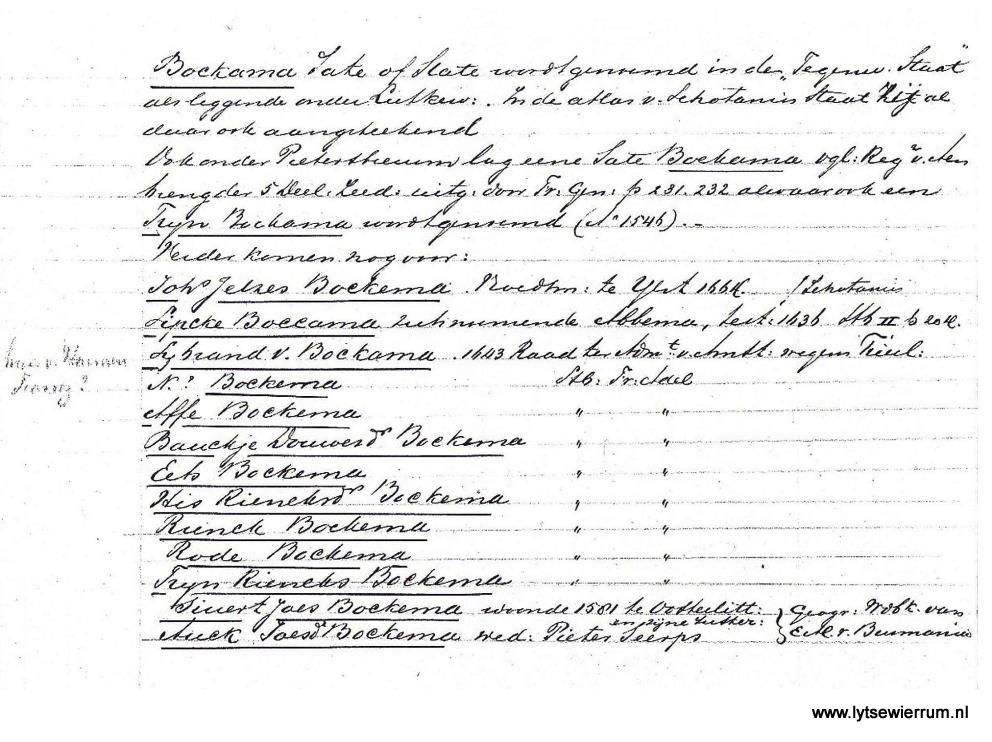 Bockama Sate of State wordt genoemd in de "Tegenw. Staat"
als leggende onder Lutkew: . In de atlas v. Schotanus staat zij al
daar ook aangeteekend
Ook onder Pietersbierum lag eene Sate Bockama vgl: Regr v. Aen
breng der 5 Deel. Leeu: uitg: door Fr: Gen: p 231. 232 alwaar ook een
Tryn Bockama wordt genoemd (Ao 1546). -
Verder komen nog voor:
Johs Jelzes Bockema Vroedm: te Ylst 1664. / Schotanus
Lyncke Boccama zich noemende Abbema, test: 1636 Stb II b 204.
Sybrand v. Bockama . 1643 Raad ter Admt v. Amst: wegens Tiel:
N? Bockema Stb: Fr: Adel
Affe Bockema " "
Bauckje Douwesdr Bockema " "
Eets Bockema " "
His Riencksdr Bockema " "
Rienck Bockema " "
Rode Bockema " "
Tryn Riencks Bockema " "
Siuert Jaes Bockema woonde 1581 te Oosterlitt: } Geogr: Wdbk. van
en zijne zuster:
Auck Jaesd Bockema wed: Pieter Seerps